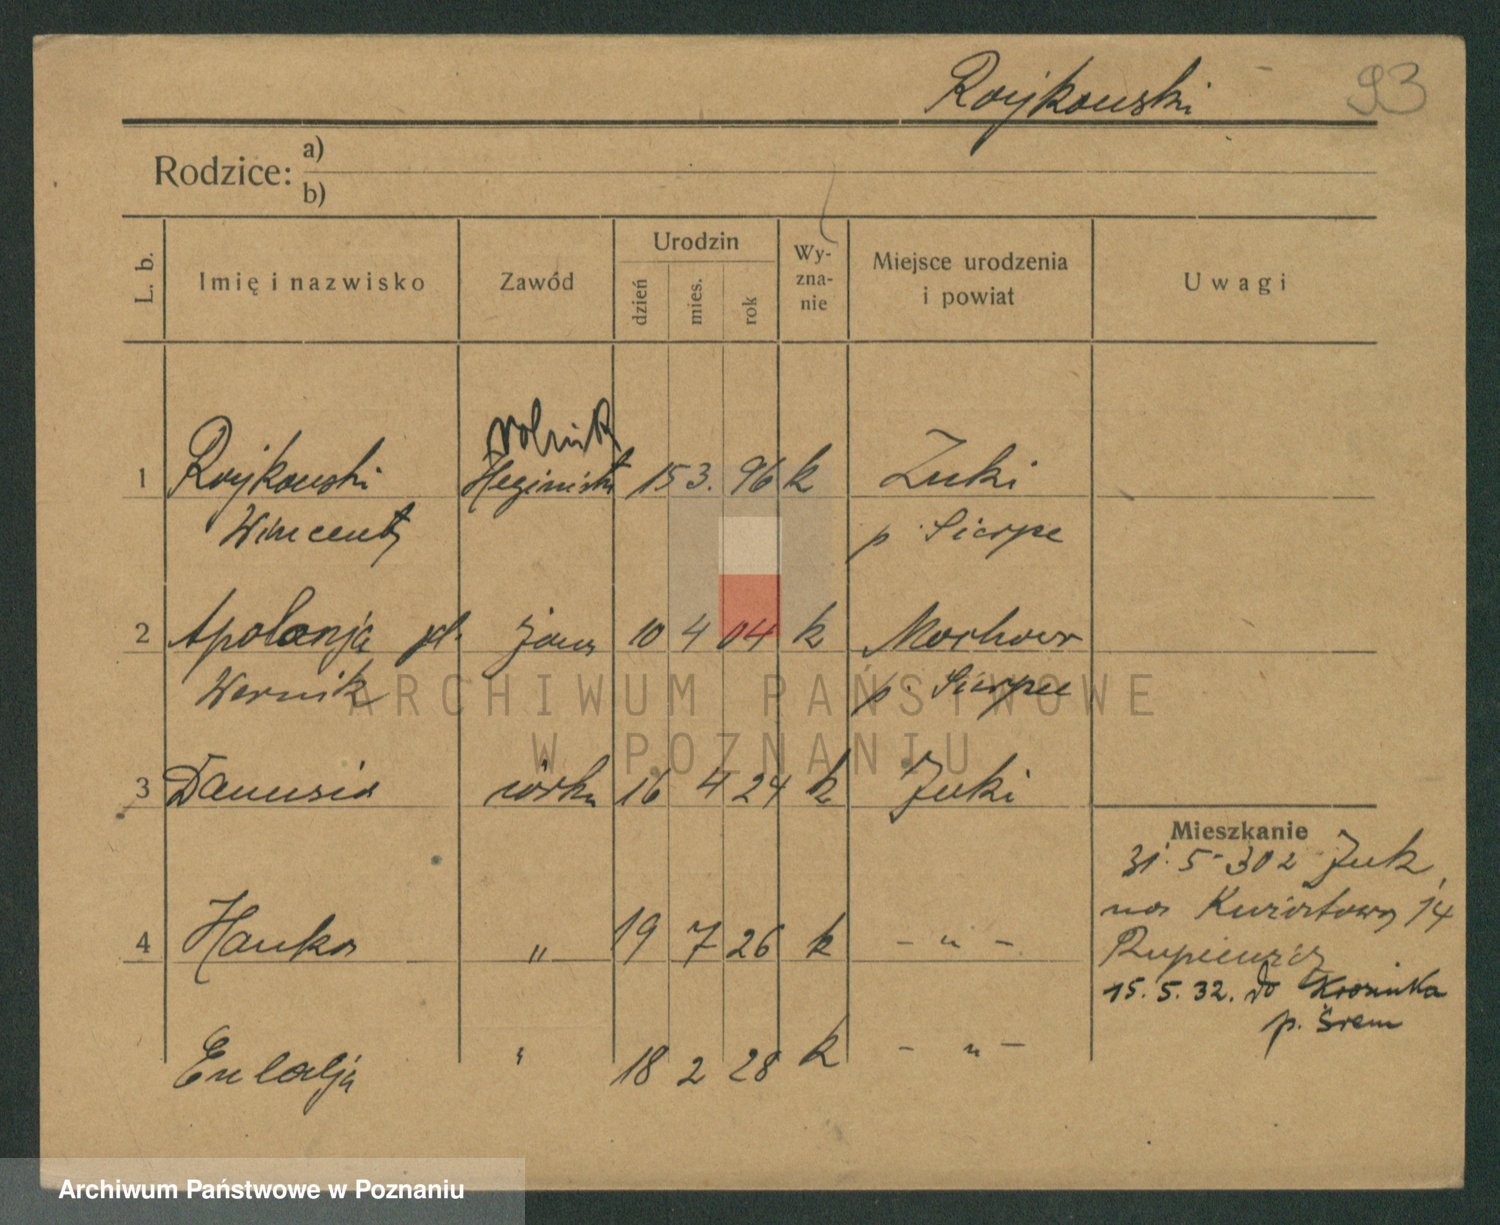 Rojkowski 93
Rodzice: a)
b)
L. b. Imię i nazwisko Zawód Urodzin dzień mies. rok Wyznanie Miejsce urodzenia i powiat Uwagi
rolnik
1 Rojkowski 15 3. 96 k Żuki
Wincenty p. Sierpc
2 Apolonja żona 10 4 04 k
Wernik p. Sierpce
ARCHIWUM PAŃSTWOWE
W POZNANIU
3 Danusia córka 16 4 24 k Żuki
Mieszkanie
31. 5 30 z Żuk
4 Hanka " 19 7 26 k - " -
na Kwiatową 14
15. 5. 32. do Krosinka
p. Śrem
Eulalja " 18 2 28 k - " -
Archiwum Państwowe w Poznaniu